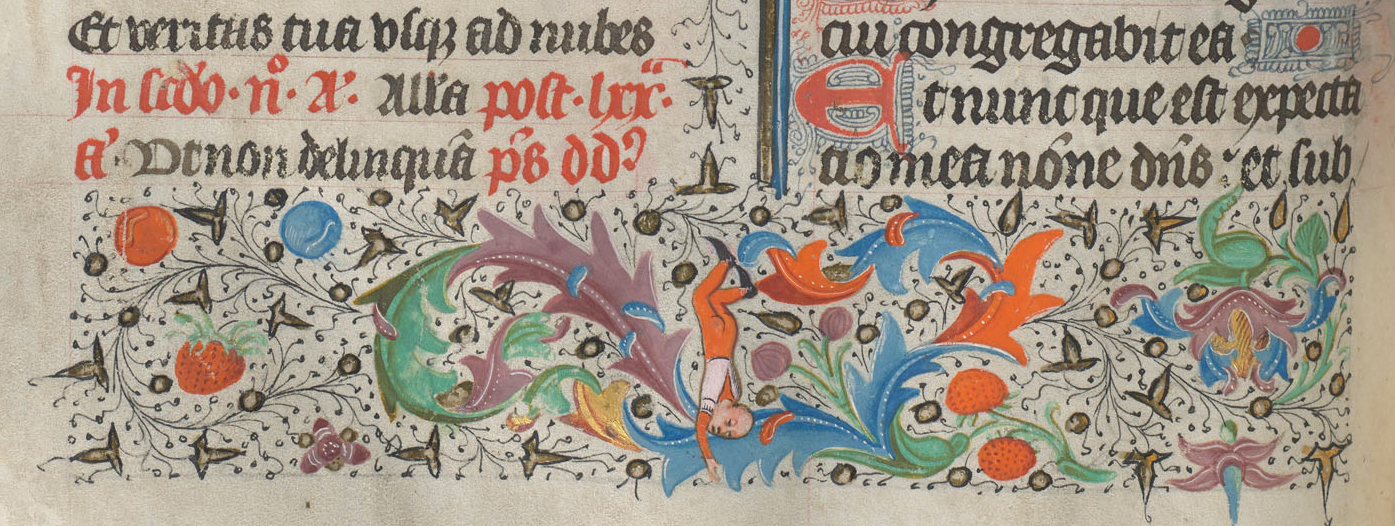 Et veritas tua vsqꝫ ad nubes
In scd̄o · n̊ · A̷ · All'a post · lxx ·
a' · Vt non delinquā ps̄ dd̾
cui congregabit ea
Et nunc que est expecta
tio mea nōne dn̄s : et sub